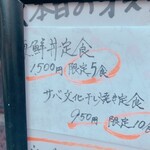 本日のオス
鮮丼定食
1500円 限定5食
サバ文化干し焼き定食
950円 限定10食